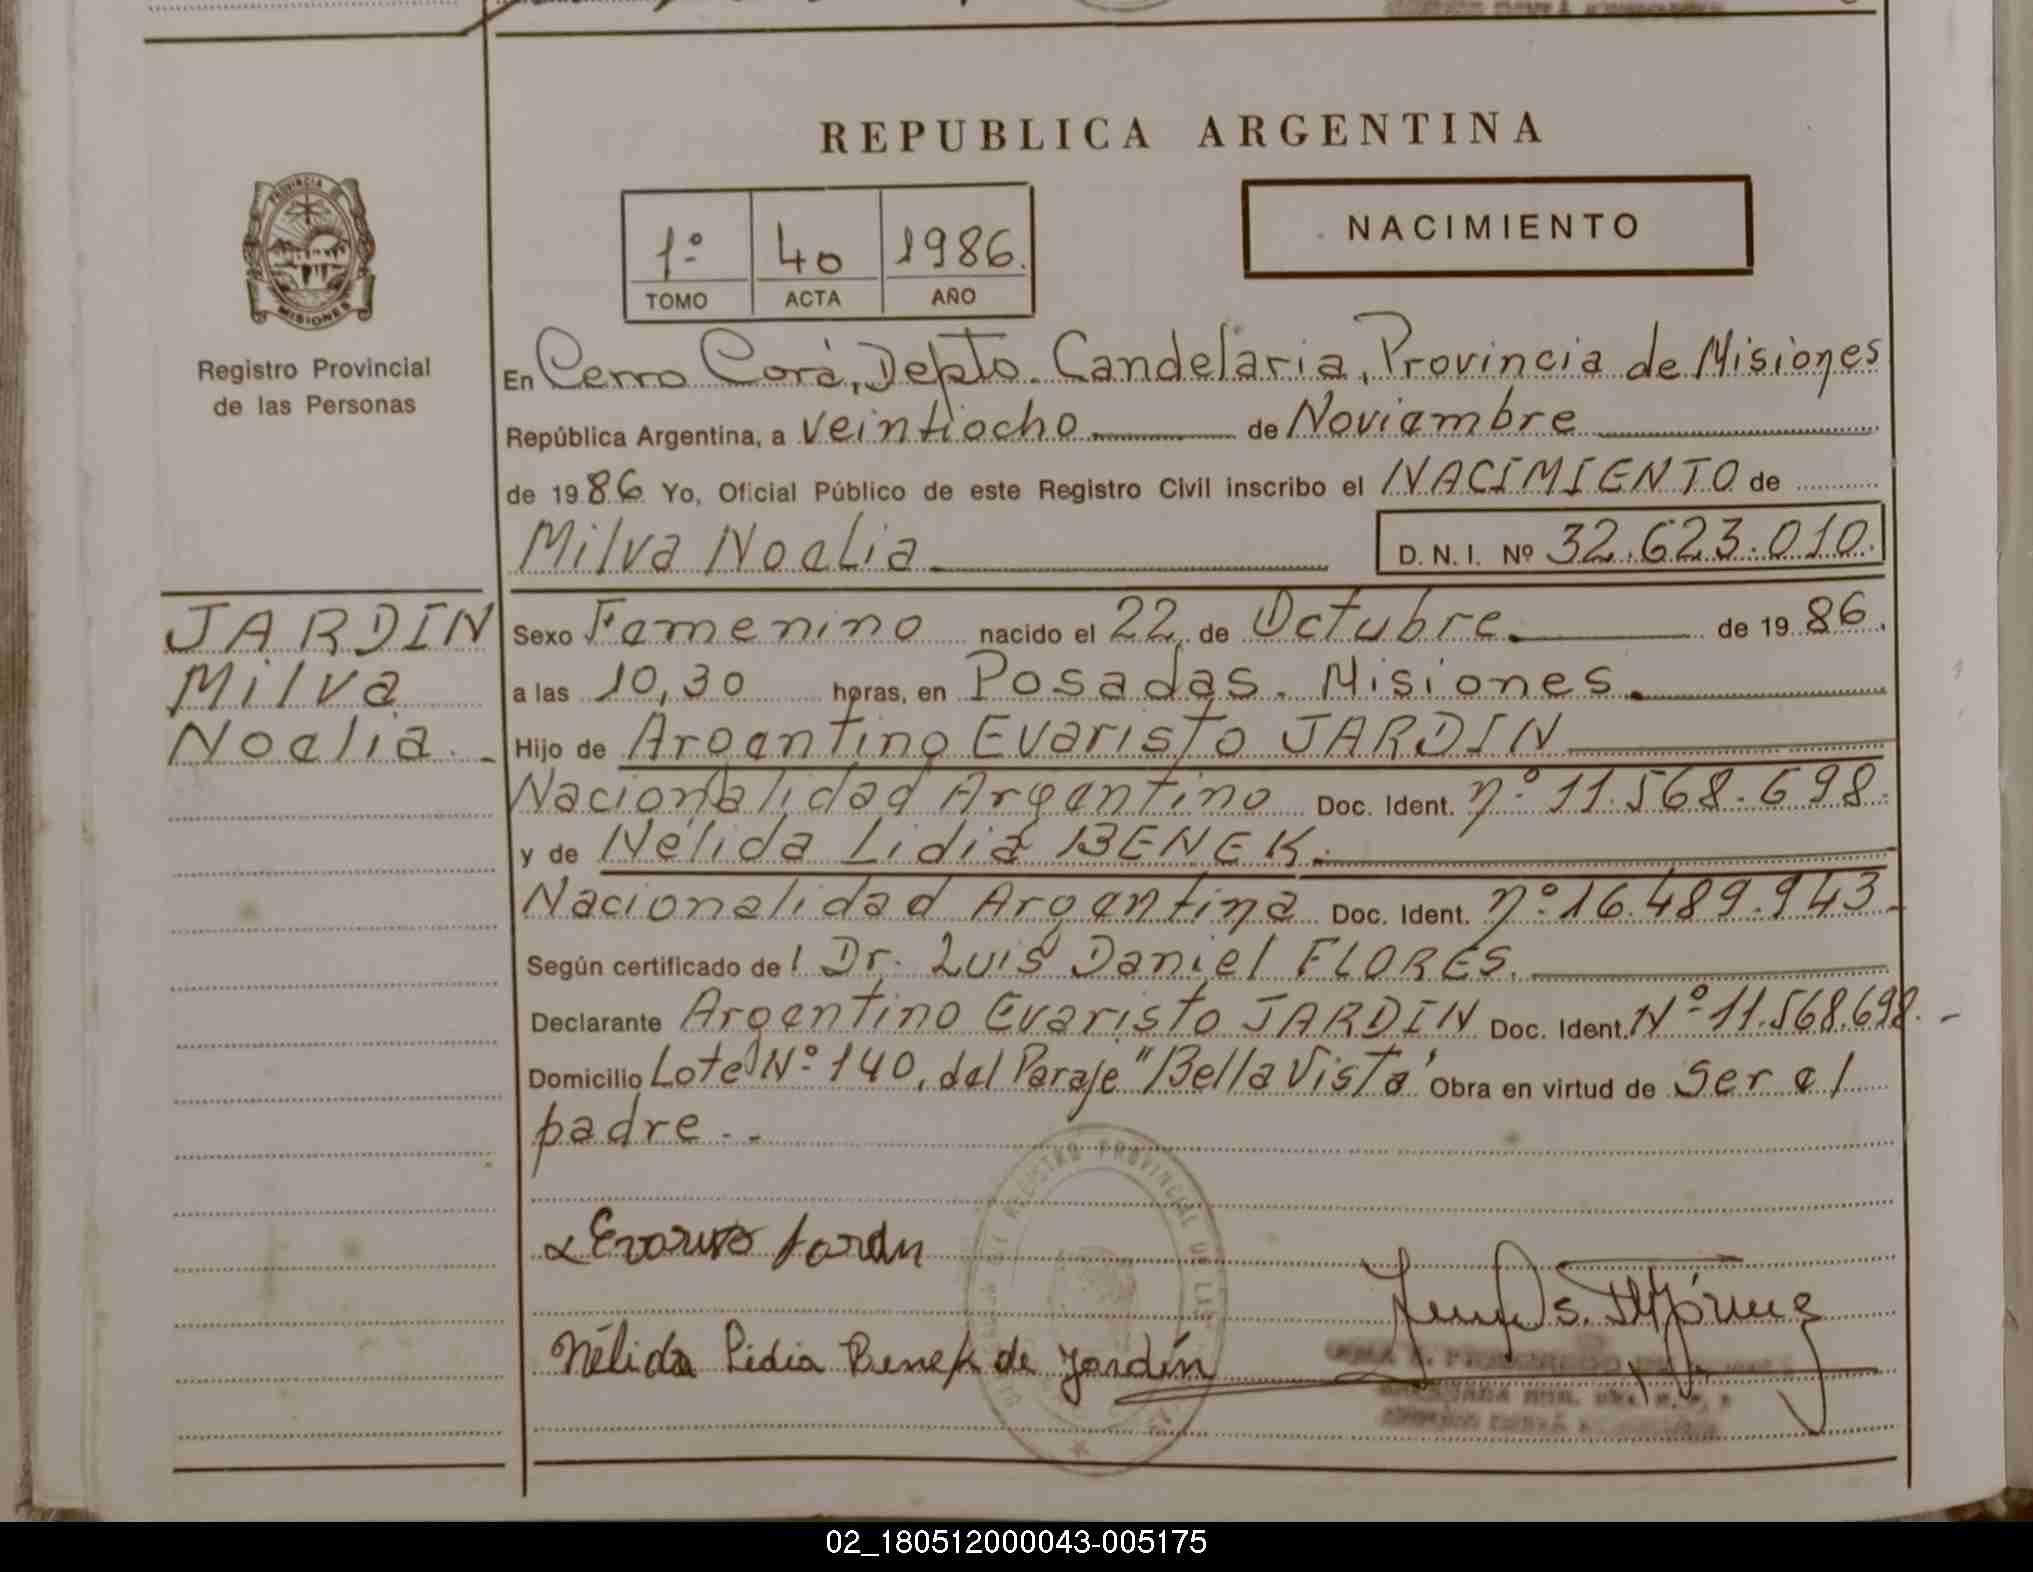 REPUBLICA ARGENTINA
PROVINCIA
MISIONES
Registro Provincial
de las Personas
1º 40 1986.
TOMO ACTA AÑO
NACIMIENTO
En Cerro Corá, Depto. Candelaria, Provincia de Misiones
República Argentina, a veintiocho de Noviembre
de 1986 Yo, Oficial Público de este Registro Civil inscribo el NACIMIENTO de
Milva Noelia D. N. I. Nº 32.623.010.
JARDIN
Milva
Noelia.
Sexo Femenino nacido el 22 de Octubre. de 1986.
a las 10,30 horas, en Posadas. Misiones.
Hijo de Argentino Evaristo JARDIN
Nacionalidad Argentino Doc. Ident. nº 11.568.698.
y de Nélida Lidia BENEK.
Nacionalidad Argentina Doc. Ident. nº 16.489.943.
Según certificado de l Dr. Luis Daniel FLORES.
Declarante Argentino Evaristo JARDIN Doc. Ident. Nº 11.568.698.-
Domicilio Lote Nº 140, del Paraje "Bella Vista" Obra en virtud de ser el
padre.-
Evaristo Jardin
Nélida Lidia Benek de Jardín
REGISTRO PROVINCIAL DE LAS
02_180512000043-005175